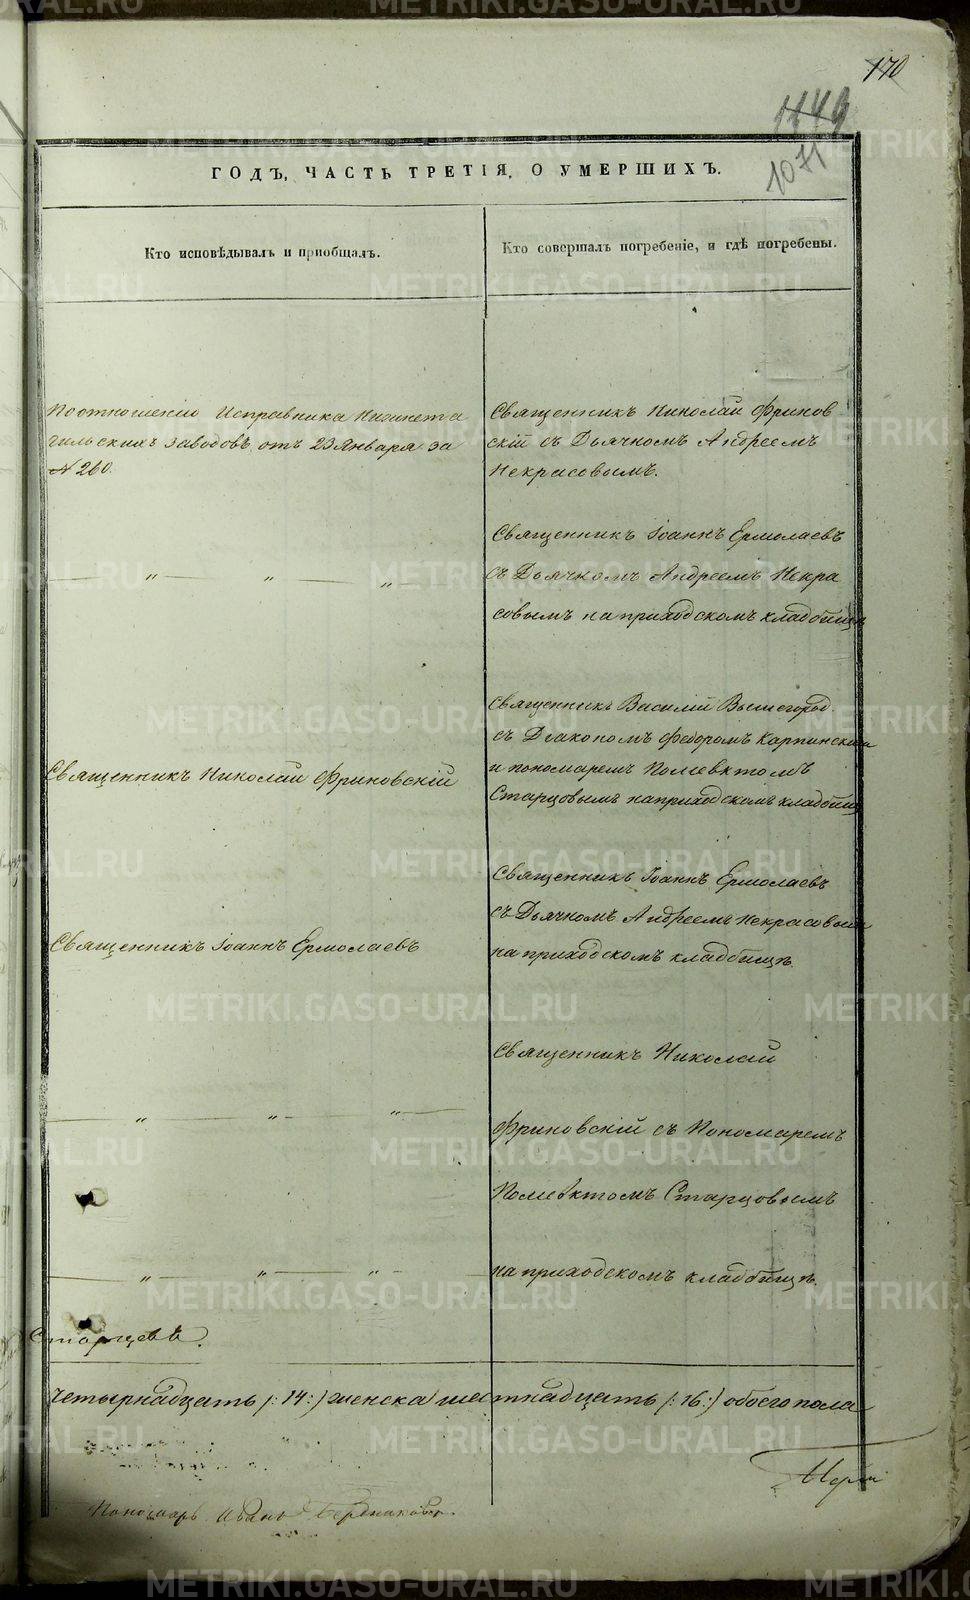 170
1149
1071
ГОДЪ, ЧАСТЬ ТРЕТІЯ, О УМЕРШИХЪ.
Кто исповѣдывалъ и пріобщалъ.
Кто совершалъ погребеніе, и гдѣ погребены.
По отношенію Исправника Нижнета
гильскихъ заводовъ отъ 23 Января за
№ 260.
Священникъ Николай Фринов
скій съ Дьячкомъ Андреемъ
Некрасовымъ.
Священникъ Іоаннъ Ермолаевъ
съ Дьячкомъ Андреемъ Некра
совымъ на приходскомъ кладбищѣ
Священникъ Николай Фриновскій
Священникъ Василій Вышегород.
съ Діакономъ Федоромъ Карпинским
и пономаремъ Полиевктомъ
Старцовымъ на приходскомъ кладбищ
Священникъ Іоаннъ Ермолаевъ
Священникъ Іоаннъ Ермолаевъ
съ Дьячкомъ Андреемъ Некрасовым
на приходскомъ кладбищѣ.
Священникъ Николай
Фриновскій съ Пономаремъ
Полиевктомъ Старцовымъ
на приходскомъ кладбищѣ.
Старцевъ.
четырнадцать /:14:/ женска шестнадцать /:16:/ обоего пола
Пономарь Иванъ
METRIKI.GASO-URAL.RU